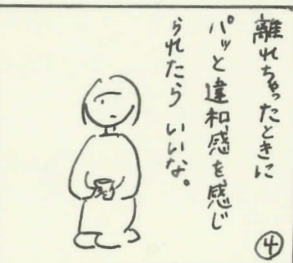 離れちゃったときに
パッと違和感を感じ
られたら いいな。
④